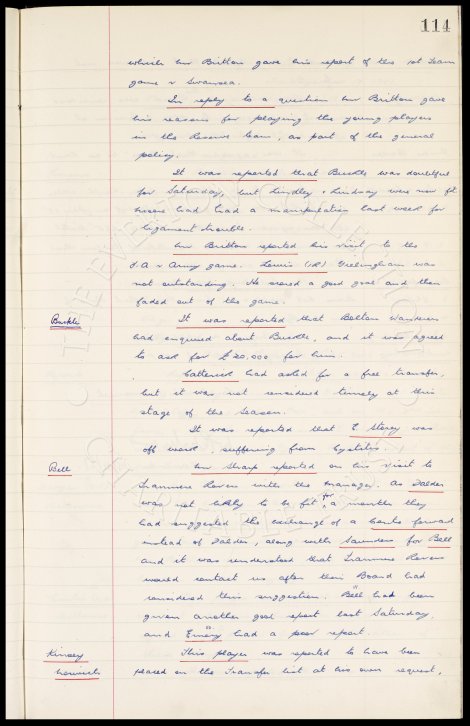 114
which Mr Britton gave his report of the 1st Team
game v Swansea.
In reply to a question Mr Britton gave
his reasons for playing the young players
in the Reserve team, as part of the general
policy.
It was reported that Buckle was doubtful
for Saturday, but Lindley & Lindsay were now fit
had had a manipulation last week for
ligament trouble.
Mr Britton reported his visit to the
F.A v Army game. Lewis (I.R) Gillingham was
not outstanding. He scored a good goal and then
faded out of the game.
Buckle
It was reported that Bolton Wanderers
had enquired about Buckle, and it was agreed
to ask for £20,000 for him.
Catterick had asked for a free transfer,
but it was not considered timely at this
stage of the season.
It was reported that E. Storey was
off work, suffering from Cystitis.
Bell
Mr Sharp reported on his visit to
Tranmere Rovers with the Manager. As Zalder
was not likely to be fit for a month they
had suggested the exchange of a Centre forward
instead of Zalder, along with Saunders for Bell
and it was understood that Tranmere Rovers
would contact us after their Board had
considered this suggestion. Bell had been
given another good report last Saturday,
and Emery had a poor report.
Kinsey
Norwich
This player was reported to have been
placed on the Transfer list at his own request,
THE EVERTON COLLECTION